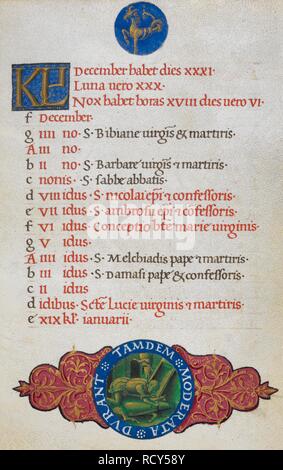 KL December habet dies XXXI.
Luna vero XXX.
Nox habet horas XVIII dies vero VI.
f December.
g IIII no. S. Bibiane virgis & martiris.
A III no.
b II no. S. Barbare virgis & martiris.
c nonis. S. sabbe abbatis.
d VIII idus. S. nicolai epi & confessoris.
e VII idus. S. ambrosii epi & cōfessoris.
f VI idus. Conceptio bte marie virginis
g V idus.
A IIII idus. S. Melchiadis pape & martiris.
b III idus. S. Damasi pape & confessoris.
c II idus
d idibus. Scte Lucie virginis & martiris.
e XIX kl. ianuarii.
DVRANT TAMDEM MODERATA
alamy
Image ID: RCY58Y
www.alamy.com